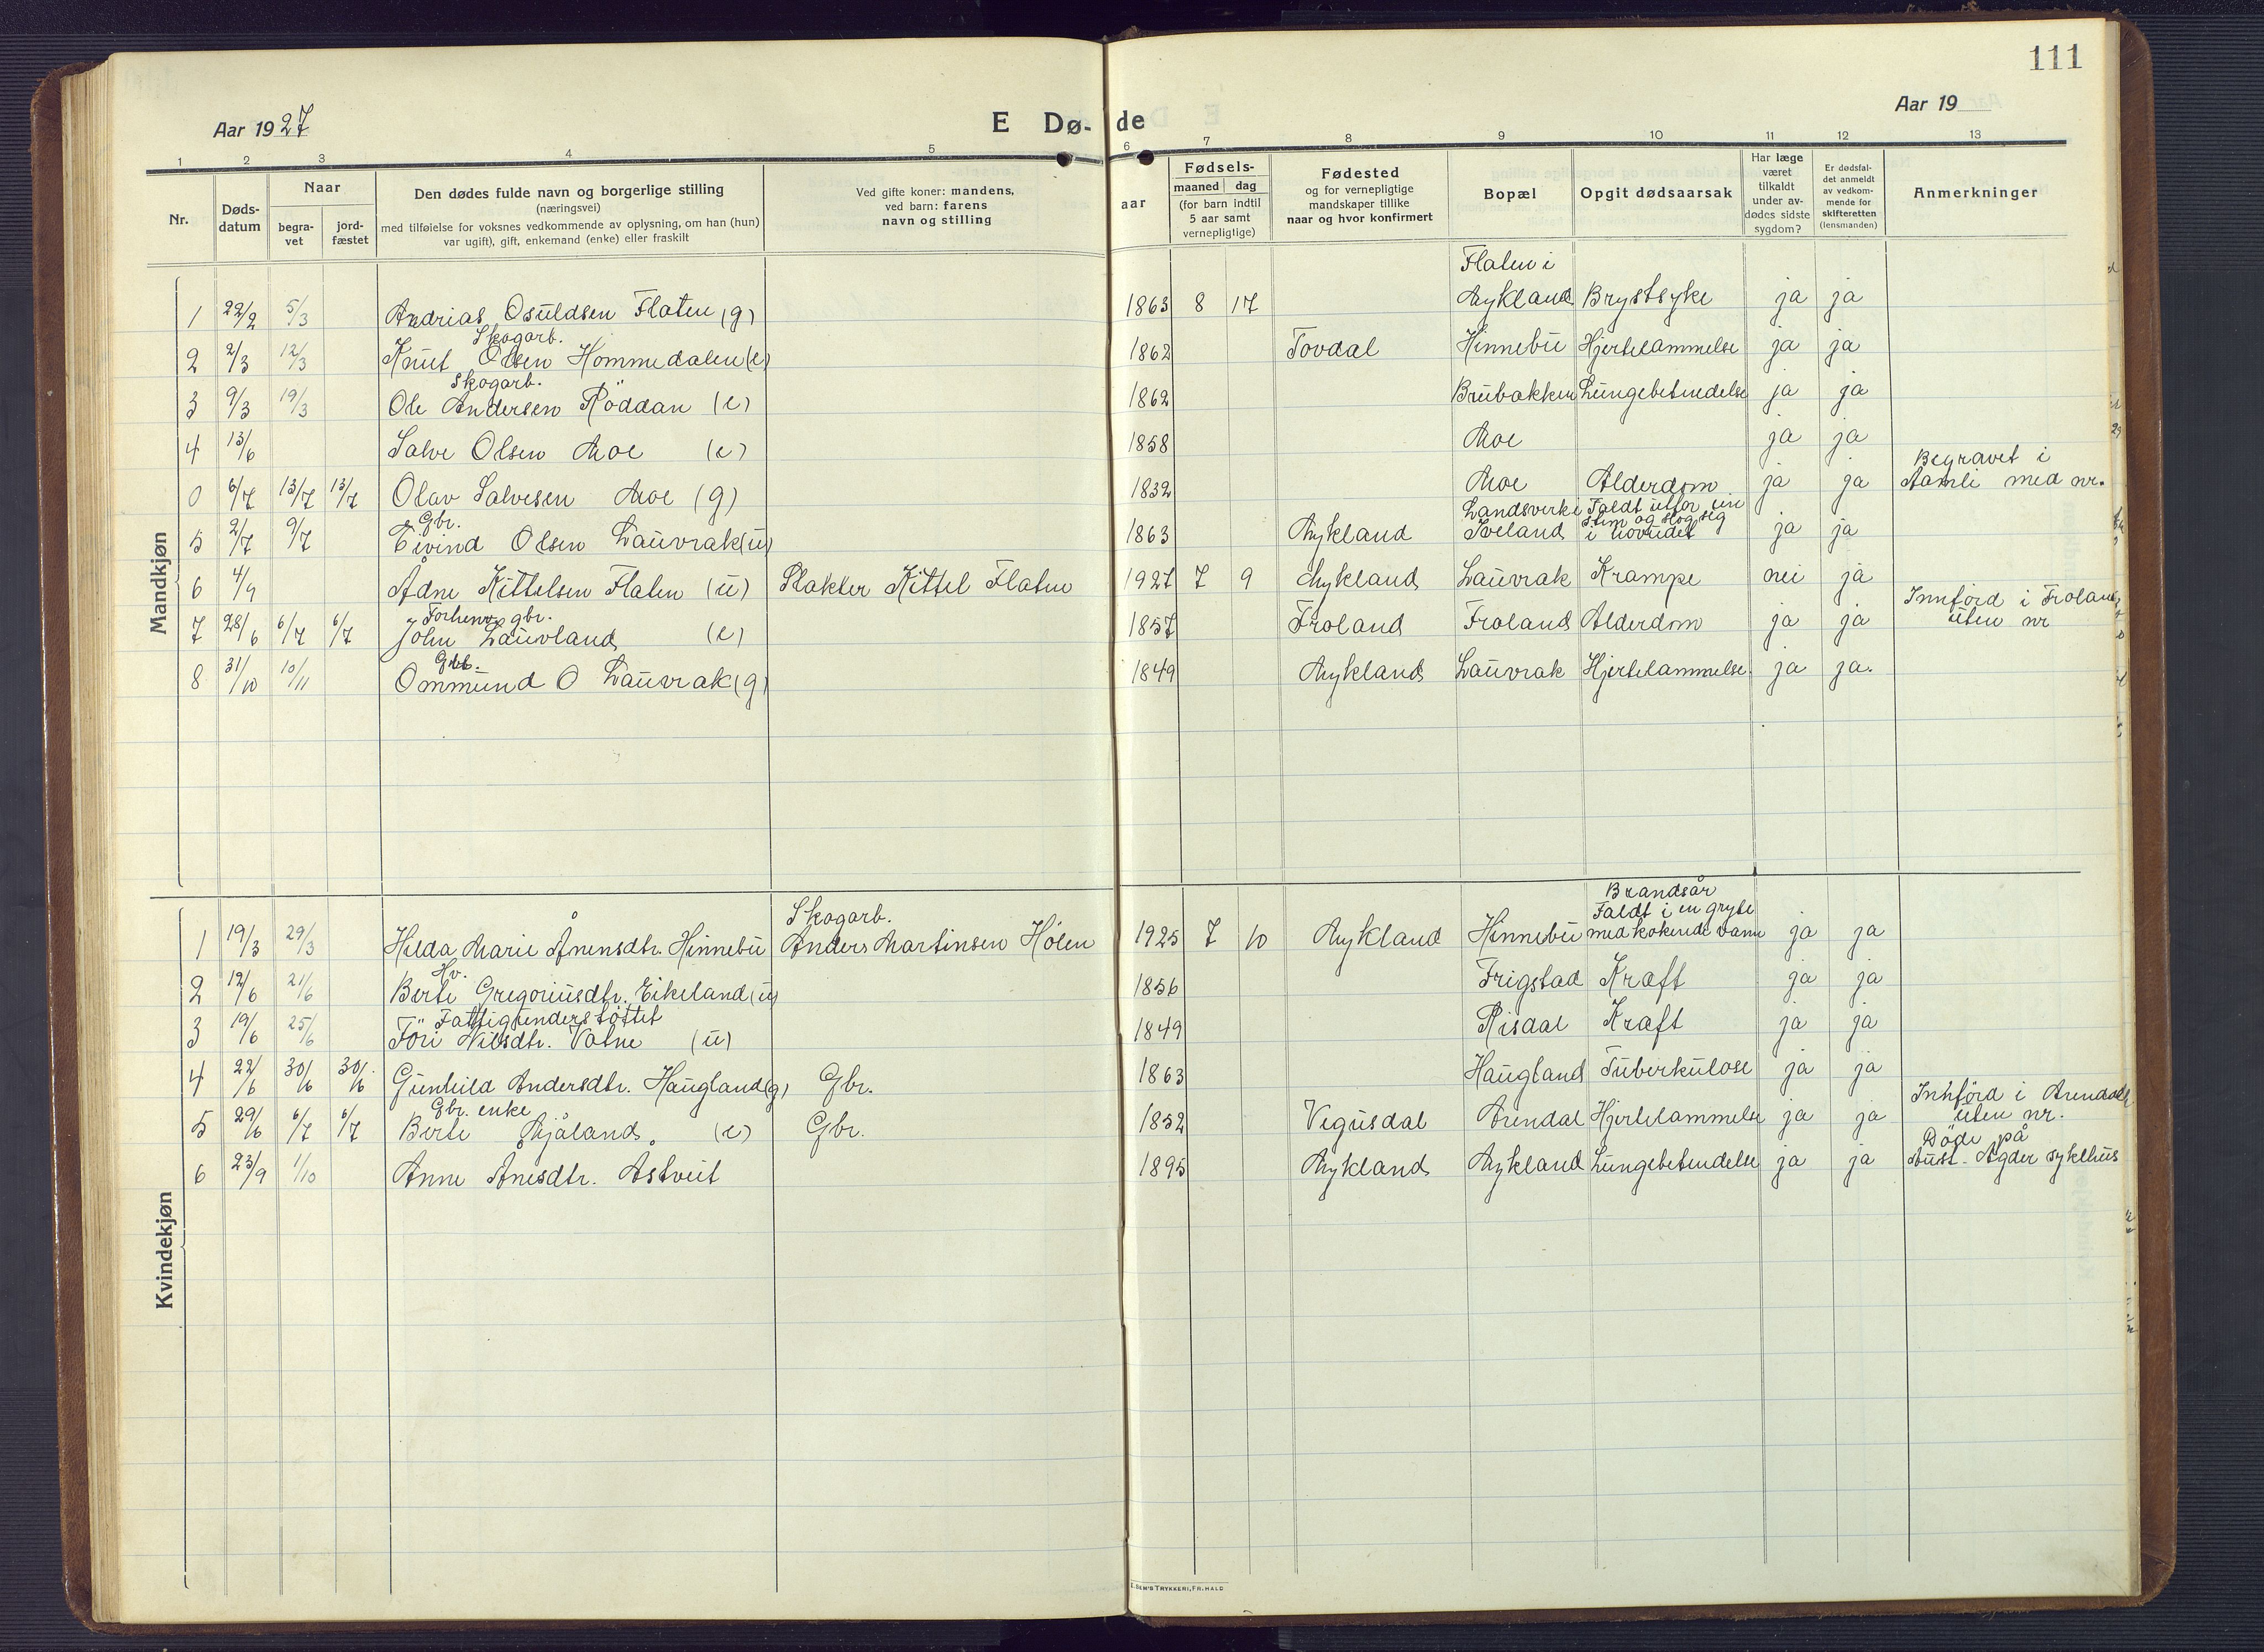 111
Aar 1927
E Dø- de
Aar 19
1 2 3 4 5 6 7 8 9 10 11 12 13
Nr.
Døds-
datum
Naar
begra-
vet
jord-
fæstet
Den dødes fulde navn og borgerlige stilling
(næringsvei)
med tilføielse for voksnes vedkommende av oplysning, om han (hun)
var ugift), gift, enkemand (enke) eller fraskilt
Ved gifte koner: mandens,
ved barn: farens
navn og stilling
aar
Fødsels-
maaned dag
(for barn indtil
5 aar samt
vernepligtige)
Fødested
og for vernepligtige
mandskaper tillike
naar og hvor konfirmert
Bopæl
Opgit dødsaarsak
Har læge
været
tilkaldt
under av-
dødes sidste
sygdom?
Er dødsfal-
det anmeldt
av vedkom-
mende for
skifteretten
(lensmanden)
Anmerkninger
Mandkjøn
Flaten i
1 22/2 5/3 Andrias Osuldsen Flaten (g) 1863 8 17 Mykland Brystsyke ja ja
Skogarb.
2 2/3 12/3 Knut Olsen Hommedalen (e) 1862 Tovdal Hinnebu Hjertelammelse ja ja
Skogarb.
3 9/3 19/3 Ole Andersen Röddan (e) 1862 Brubakken Lungebetendelse ja ja
4 13/6 Salve Olsen Moe (e) 1858 Moe ja ja
Begravet i
0 6/7 13/7 13/7 Olav Salvesen Moe (g) 1832 Moe Alderdom ja ja Åamli med nr.
Gbr. Landsverk i Faldt utfor ein
stein og slog seg
5 2/7 9/7 Eivind Olsen Lauvrak (u) 1863 Mykland Iveland i hovudet ja ja
6 4/9 Ådne Kittelsen Flaten (u) Slakter Kittel Flaten 1927 7 9 Mykland Lauvrak Krampe nei ja
Forhenv. gbr. Innförd i Froland
7 28/6 6/7 6/7 John Lauvland (e) 1857 Froland Froland Alderdom ja ja uten nr
Gbr.
8 31/10 10/11 Ommund O Lauvrak (g) 1849 Mykland Lauvrak Hjertelammelse ja ja.
Kvindekjøn
Skogarb. Brandsår
Faldt i en gryte
1 19/3 29/3 Hilda Marie Årnensdtr. Hinnebu Anders Martinsen Hölen 1925 7 10 Mykland Hinnebu med kokende vann ja ja
Hv.
2 12/6 21/6 Berte Gregoriusdtr. Eikeland (u) 1856 Frigstad Kræft ja ja
Fattigunderstöttet
3 19/6 25/6 Töri Nilsdtr. Vatne (u) 1849 Risdal Kræft ja ja
4 22/6 30/6 30/6 Gunhild Andersdtr. Haugland (g) Gbr. 1863 Haugland Tuberkulose ja ja
Gbr. enke Innförd i Arendal
5 29/6 6/7 6/7 Berte Mjåland (e) Gbr. 1852 Vegusdal Arendal Hjertelammelse ja ja uten nr.
Döde på
6 23/9 1/10 Anne Ånesdtr. Åstveit 1895 Mykland Mykland Lungebetendelse ja ja Aust-Agder sykehus
E. SEM'S TRYKKERI, FR.HALD